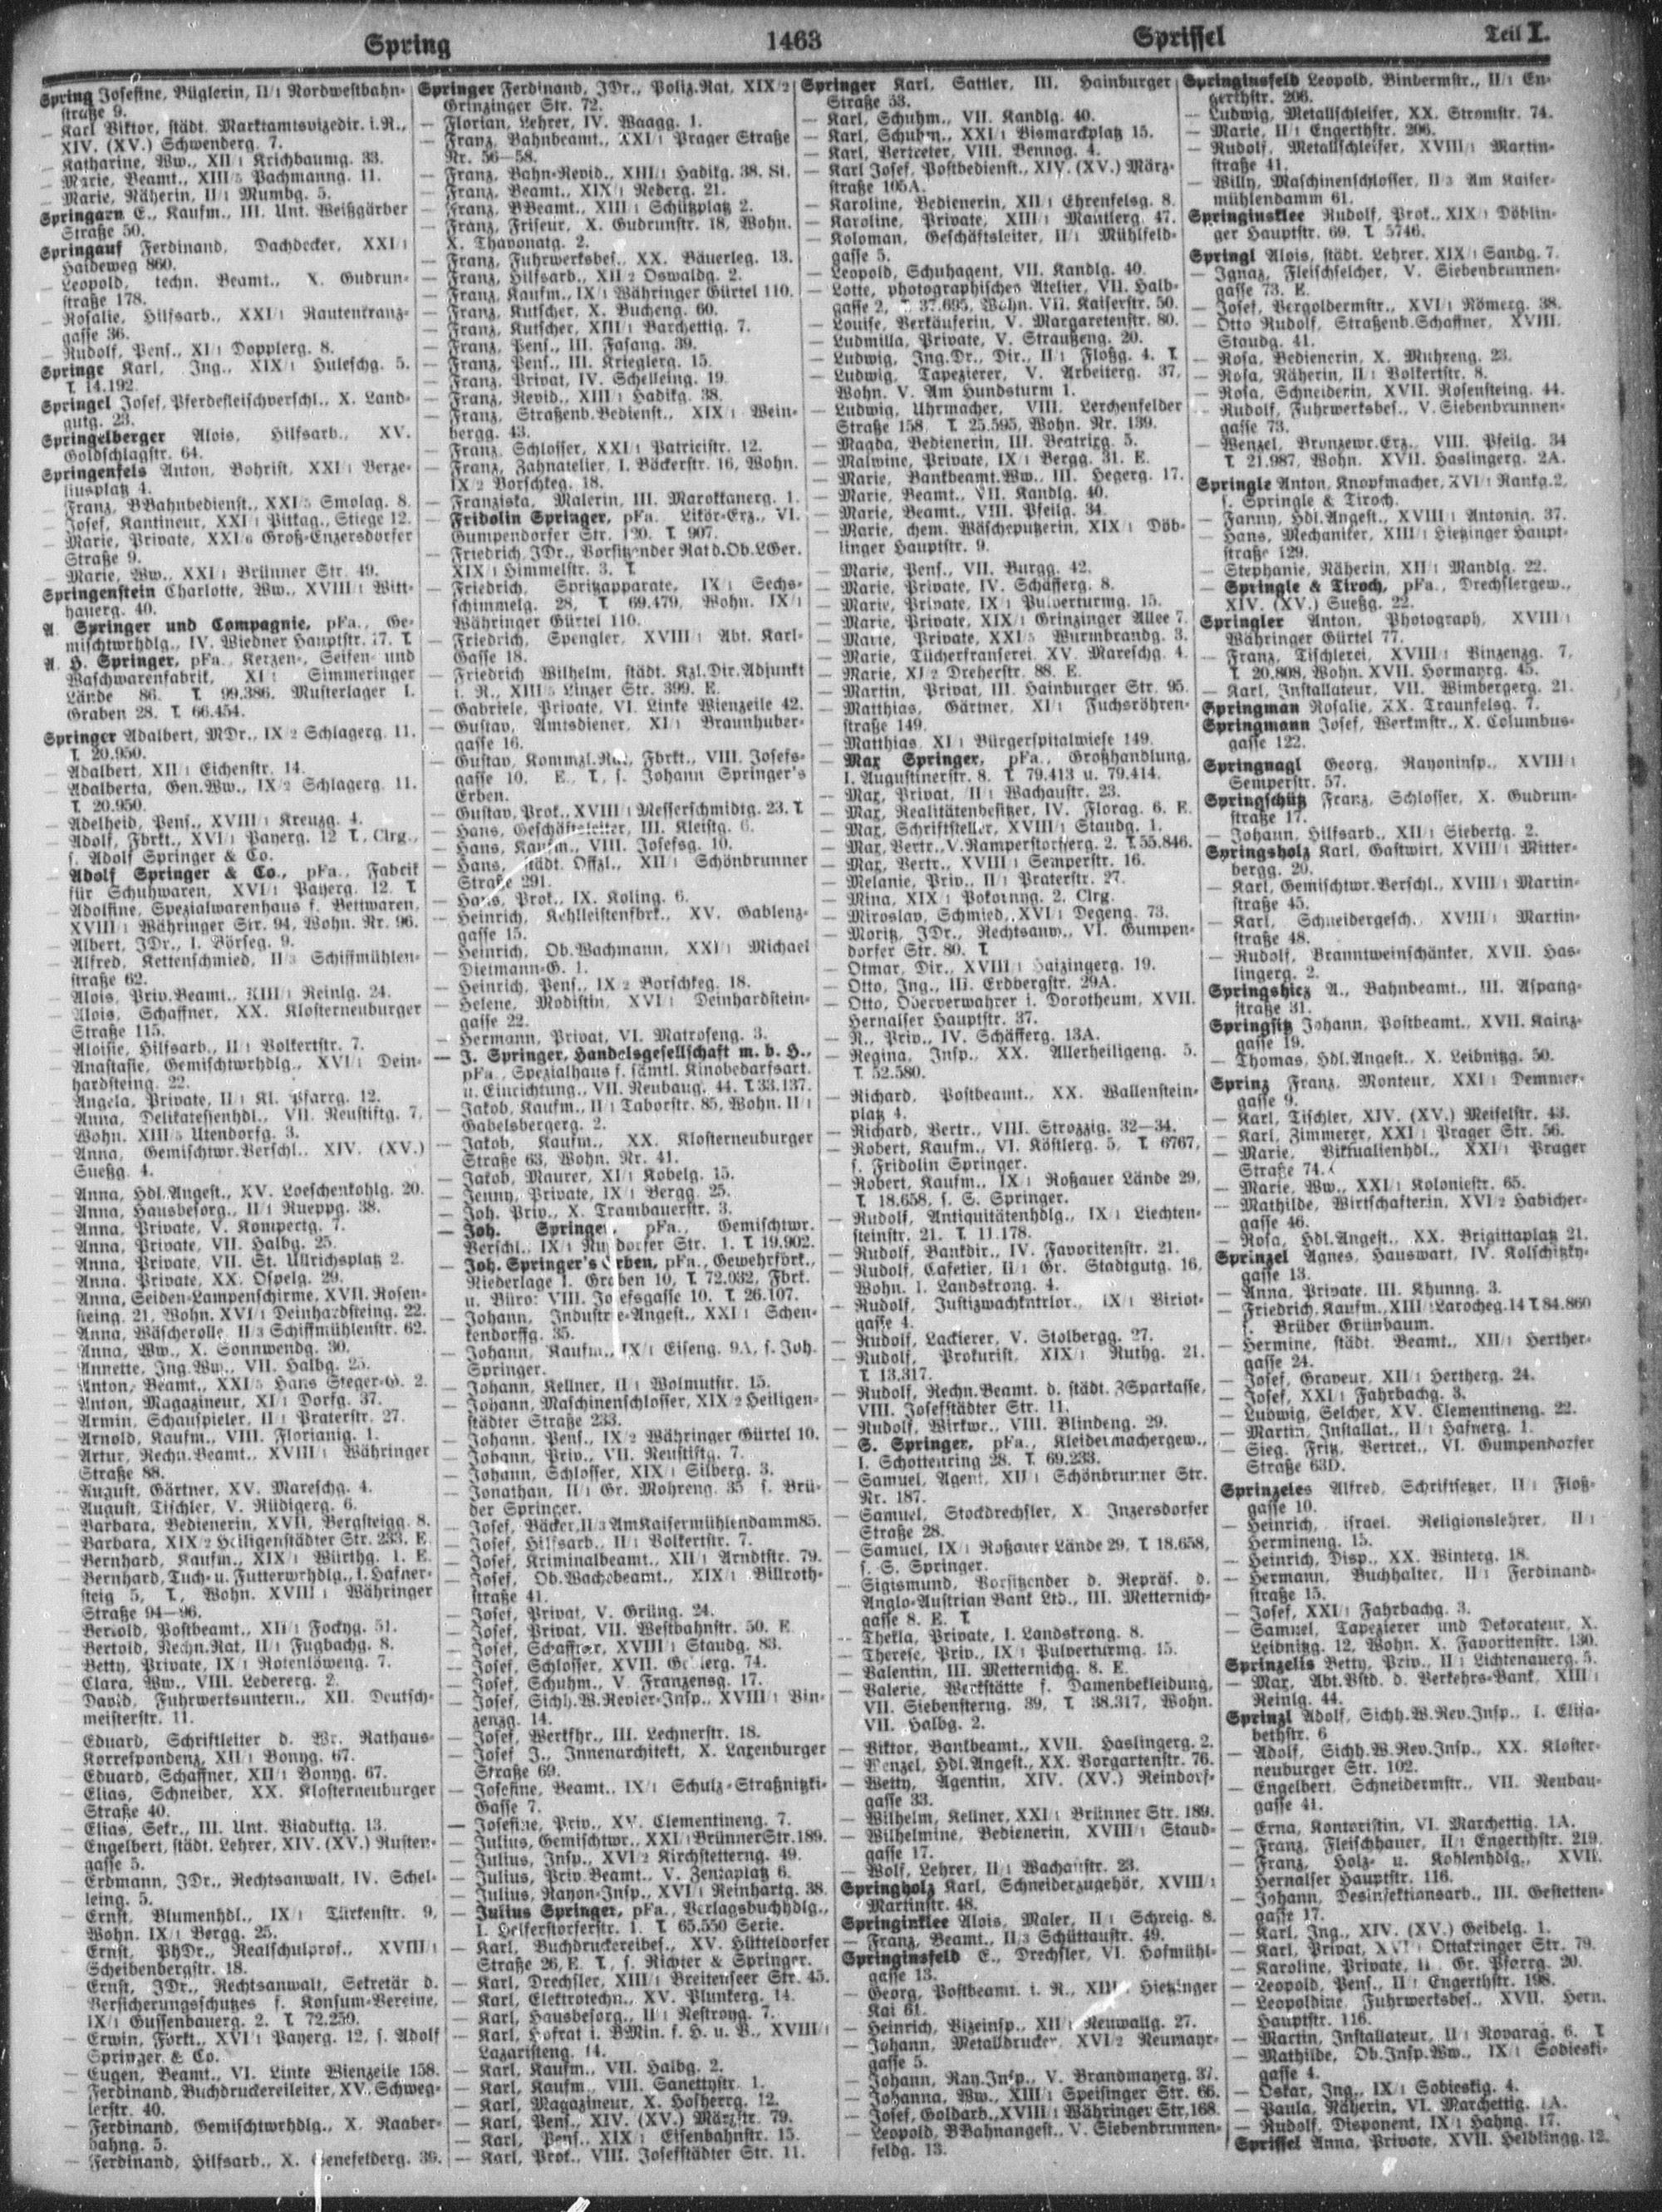 Spring 1463 Spriffel Teil I.
Spring Josefine, Büglerin, II/1 Nordwestbahn-
straße 9.
— Karl Viktor, städt. Marktamtsvizedir. i.R.,
XIV. (XV.) Schwenderg. 7.
— Katharine, Ww., XII/1 Krichbaumg. 33.
— Marie, Beamt., XIII/5 Bachmanng. 11.
— Marie, Näherin, II/1 Mumbg. 5.
Springarn E., Kaufm., III. Unt. Weißgärber
Straße 50.
Springauf Ferdinand, Dachdecker, XXI/1
Haideweg 860.
— Leopold, techn. Beamt., X. Gudrun-
straße 178.
— Rosalie, Hilfsarb., XXI/1 Rautenkranz-
gasse 36.
— Rudolf, Pens., XI/1 Dopplerg. 8.
Springe Karl, Ing., XIX/1 Huleschg. 5.
T. 14.192.
Springel Josef, Pferdefleischverschl., X. Land-
gutg. 23.
Springelberger Alois, Hilfsarb., XV.
Goldschlagstr. 64.
Springenfels Anton, Bohrist, XXI/1 Berze-
liusplatz 4.
— Franz, BBahnbedienst., XXI/5 Smolag. 8.
— Josef, Kantineur, XXI/1 Pittag., Stiege 12.
— Marie, Private, XXI/6 Groß-Enzersdorfer
Straße 9.
— Marie, Ww., XXI/1 Brünner Str. 49.
Springenstein Charlotte, Ww., XVIII/1 Witt-
hauerg. 40.
A. Springer und Compagnie, pFa., Ge-
mischtwrhdlg., IV. Wiedner Hauptstr. 17. T.
A. H. Springer, pFa., Kerzen-, Seifen- und
Waschwarenfabrik, XI/1 Simmeringer
Lände 86. T. 99.386, Musterlager I.
Graben 28. T. 66.454.
Springer Adalbert, MDr., IX/2 Schlagerg. 11.
T. 20.950.
— Adalbert, XII/1 Eichenstr. 14.
— Adalberta, Gen.Ww., IX/2 Schlagerg. 11.
T. 20.950.
— Adelheid, Pens., XVIII/1 Kreuzg. 4.
— Adolf, Fbrkt., XVI/1 Payerg. 12 T., Clrg.,
s. Adolf Springer & Co.
— Adolf Springer & Co., pFa., Fabrik
für Schuhwaren, XVI/1 Payerg. 12. T.
— Adolfine, Spezialwarenhaus f. Bettwaren,
XVIII/1 Währinger Str. 94, Wohn. Nr. 96.
— Albert, JDr., I. Börseg. 9.
— Alfred, Kettenschmied, II/3 Schiffmühlen-
straße 62.
— Alois, Priv.Beamt., XIII/1 Reinlg. 24.
— Alois, Schaffner, XX. Klosterneuburger
Straße 115.
— Aloisie, Hilfsarb., II/1 Volkertstr. 7.
— Anastasie, Gemischtwrhdlg., XVI/1 Dein-
hardsteing. 22.
— Angela, Private, II/1 Kl. Pfarrg. 12.
— Anna, Delikatessenhdl., VII. Neustiftg. 7,
Wohn. XIII/5 Utendorfg. 3.
— Anna, Gemischtwr.Verschl., XIV. (XV.)
Sueßg. 4.
— Anna, Hdl.Angest., XV. Loeschenkohlg. 20.
— Anna, Hausbesorg., II/1 Rueppg. 38.
— Anna, Private, V. Kompertg. 7.
— Anna, Private, VII. Halbg. 25.
— Anna, Private, VII. St. Ullrichsplatz 2.
— Anna, Private, XX. Ospelg. 29.
— Anna, Seiden-Lampenschirme, XVII. Rosen-
steing. 21, Wohn. XVI/1 Deinhardsteing. 22.
— Anna, Wäscherolle, II/3 Schiffmühlenstr. 62.
— Anna, Ww., X. Sonnwendg. 30.
— Annette, Ing.Ww., VII. Halbg. 25.
— Anton, Beamt., XXI/5 Hans Steger-G. 2.
— Anton, Magazineur, XI/1 Dorfg. 37.
— Armin, Schauspieler, II/1 Praterstr. 27.
— Arnold, Kaufm., VIII. Florianig. 1.
— Artur, Rechn.Beamt., XVIII/1 Währinger
Straße 88.
— August, Gärtner, XV. Mareschg. 4.
— August, Tischler, V. Rüdigerg. 6.
— Barbara, Bedienerin, XVII. Bergsteigg. 8.
— Barbara, XIX/2 Heiligenstädter Str. 233. E.
— Bernhard, Kaufm., XIX/1 Würthg. 1. E.
— Bernhard, Tuch- u. Futterwrhdlg., I. Hafner-
steig 5, T., Wohn. XVIII/1 Währinger
Straße 94—96.
— Bertold, Postbeamt., XII/1 Fockyg. 51.
— Bertold, Rechn.Rat, II/1 Fugbachg. 8.
— Betty, Private, IX/1 Rotenlöweng. 7.
— Clara, Ww., VIII. Ledererg. 2.
— David, Fuhrwerksuntern., XII. Deutsch-
meisterstr. 11.
— Eduard, Schriftleiter d. Wr. Rathaus-
Korrespondenz, XII/1 Bonyg. 67.
— Eduard, Schaffner, XII/1 Bonyg. 67.
— Elias, Schneider, XX. Klosterneuburger
Straße 40.
— Elias, Sekr., III. Unt. Viaduktg. 13.
— Engelbert, städt. Lehrer, XIV. (XV.) Rusten-
gasse 5.
— Erdmann, JDr., Rechtsanwalt, IV. Schel-
leing. 5.
— Ernst, Blumenhdl., IX/1 Türkenstr. 9,
Wohn. IX/1 Bergg. 25.
— Ernst, PhDr., Realschulprof., XVIII/1
Scheibenbergstr. 18.
— Ernst, JDr., Rechtsanwalt, Sekretär d.
Versicherungsschutzes f. Konsum-Vereine,
IX/1 Gussenbauerg. 2. T. 72.250.
— Erwin, Fbrkt., XVI/1 Payerg. 12, s. Adolf
Springer & Co.
— Eugen, Beamt., VI. Linke Wienzeile 158.
— Ferdinand, Buchdruckereileiter, XV. Schweg-
lerstr. 40.
— Ferdinand, Gemischtwrhdlg., X. Raaber-
bahng. 5.
— Ferdinand, Hilfsarb., X. Senefelderg. 39.
Springer Ferdinand, JDr., Poliz.Rat, XIX/2
Grinzinger Str. 72.
— Florian, Lehrer, IV. Waagg. 1.
— Franz, Bahnbeamt., XXI/1 Prager Straße
Nr. 56—58.
— Franz, Bahn-Revid., XIII/1 Hadikg. 38. St.
— Franz, Beamt., XIX/1 Neberg. 21.
— Franz, BBeamt., XIII/1 Schützplatz 2.
— Franz, Friseur, X. Gudrunstr. 18, Wohn.
X. Thavonatg. 2.
— Franz, Fuhrwerksbes., XX. Bäuerleg. 13.
— Franz, Hilfsarb., XII/2 Oswaldg. 2.
— Franz, Kaufm., IX/1 Währinger Gürtel 110.
— Franz, Kutscher, X. Bucheng. 60.
— Franz, Kutscher, XIII/1 Barchettig. 7.
— Franz, Pens., III. Fasang. 39.
— Franz, Pens., III. Krieglerg. 15.
— Franz, Privat, IV. Schelleing. 19.
— Franz, Revid., XIII/1 Hadikg. 38.
— Franz, Straßenb.Bedienst., XIX/1 Wein-
bergg. 43.
— Franz, Schlosser, XXI/1 Patricistr. 12.
— Franz, Zahnatelier, I. Bäckerstr. 16, Wohn.
IX/2 Borschkeg. 18.
— Franziska, Malerin, III. Marokkanerg. 1.
— Fridolin Springer, pFa., Likör-Erz., VI.
Gumpendorfer Str. 120. T. 907.
— Friedrich, JDr., Vorsitzender Rat d.Ob.LGer.
XIX/1 Himmelstr. 3. T.
— Friedrich, Spritzapparate, IX/1 Sechs-
schimmelg. 28, T. 69.479, Wohn. IX/1
Währinger Gürtel 110.
— Friedrich, Spengler, XVIII/1 Abt. Karl-
Gasse 18.
— Friedrich Wilhelm, städt. Kzl.Dir.Adjunkt
i. R., XIII/5 Linzer Str. 399. E.
— Gabriele, Private, VI. Linke Wienzeile 42.
— Gustav, Amtsdiener, XI/1 Braunhuber-
gasse 16.
— Gustav, Kommzl.Rat, Fbrkt., VIII. Josefs-
gasse 10, E., T., s. Johann Springer's
Erben.
— Gustav, Prok., XVIII/1 Messerschmidtg. 23. T.
— Hans, Geschäftsleiter, III. Kleistg. 6.
— Hans, Kaufm., VIII. Josefsg. 10.
— Hans, städt. Offzl., XII/1 Schönbrunner
Straße 291.
— Hans, Prok., IX. Koling. 6.
— Heinrich, Kehlleistenfbrk., XV. Gablenz-
gasse 15.
— Heinrich, Ob.Wachmann, XXI/1 Michael
Dietmann-G. 1.
— Heinrich, Pens., IX/2 Borschkeg. 18.
— Helene, Modistin, XVI/1 Deinhardstein-
gasse 22.
— Hermann, Privat, VI. Matroseng. 3.
— J. Springer, Handelsgesellschaft m. b. H.,
pFa., Spezialhaus f. sämtl. Kinobedarfsart.
u. Einrichtung., VII. Neubaug. 44. T. 33.137.
— Jakob, Kaufm., II/1 Taborstr. 85, Wohn. II/1
Gabelsbergerg. 2.
— Jakob, Kaufm., XX. Klosterneuburger
Straße 63, Wohn. Nr. 41.
— Jakob, Maurer, XI/1 Kobelg. 15.
— Jenny, Private, IX/1 Bergg. 25.
— Joh. Priv., X. Trambauerstr. 3.
— Joh. Springer, pFa., Gemischtwr.
Verschl., IX/1 Nußdorfer Str. 1. T. 19.902.
— Joh. Springer's Erben, pFa., Gewehrfbrk.,
Niederlage I. Graben 10, T. 72.032, Fbrk.
u. Büro: VIII. Josefsgasse 10. T. 26.107.
— Johann, Industrie-Angest., XXI/1 Schen-
kendorffg. 35.
— Johann, Kaufm., IX/1 Eiseng. 9A, s. Joh.
Springer.
— Johann, Kellner, II/1 Wolmutstr. 15.
— Johann, Maschinenschlosser, XIX/2 Heiligen-
städter Straße 233.
— Johann, Pens., IX/2 Währinger Gürtel 10.
— Johann, Priv., VII. Neustiftg. 7.
— Johann, Schlosser, XIX/1 Silberg. 3.
— Jonathan, II/1 Gr. Mohreng. 35 s. Brü-
der Springer.
— Josef, Bäcker, II/3 Am Kaisermühlendamm 85.
— Josef, Hilfsarb., II/1 Volkertstr. 7.
— Josef, Kriminalbeamt., XII/1 Arndtstr. 79.
— Josef, Ob.Wachebeamt., XIX/1 Billroth-
straße 41.
— Josef, Privat, V. Grüng. 24.
— Josef, Privat, VII. Westbahnstr. 50. E.
— Josef, Schaffner, XVIII/1 Staudg. 83.
— Josef, Schlosser, XVII. 74.
— Josef, Schuhm., V. Franzensg. 17.
— Josef, Sichh.W.Revier-Insp., XVIII/1 Vin-
zenzg. 14.
— Josef, Werkfhr., III. Lechnerstr. 18.
— Josef J., Innenarchitekt, X. Laxenburger
Straße 69.
— Josefine, Beamt., IX/1 Schulz-Straßnitzki-
Gasse 7.
— Josefine, Priv., XV. Clementineng. 7.
— Julius, Gemischtwr., XXI/1 Brünner Str. 189.
— Julius, Insp., XVI/2 Kirchstetterng. 49.
— Julius, Priv.Beamt., V. Zentaplatz 6.
— Julius, Rayon-Insp., XVI/1 Reinhartg. 38.
— Julius Springer, pFa., Verlagsbuchhdlg.,
I. Helferstorferstr. 1. T. 65.550 Serie.
— Karl, Buchdruckereibes., XV. Hütteldorfer
Straße 26, E. T., s. Richter & Springer.
— Karl, Drechsler, XIII/1 Breitenseer Str. 45.
— Karl, Elektrotechn., XV. Plunkerg. 14.
— Karl, Hausbesorg., II/1 Nestroyg. 7.
— Karl, Hofrat i. BMin. f. H. u. V., XVIII/1
Lazaristeng. 14.
— Karl, Kaufm., VII. Halbg. 2.
— Karl, Kaufm., VIII. Sanettystr. 1.
— Karl, Magazineur, X. Hofherrg. 12.
— Karl, Pens., XIV. (XV.) Märzstr. 79.
— Karl, Pens., XIX/1 Eisenbahnstr. 15.
— Karl, Prok., VIII. Josefstädter Str. 11.
Springer Karl, Sattler, III. Hainburger
Straße 53.
— Karl, Schuhm., VII. Kandlg. 40.
— Karl, Schuhm., XXI/1 Bismarckplatz 15.
— Karl, Vertreter, VIII. Bennog. 4.
— Karl Josef, Postbedienst., XIV. (XV.) März-
straße 105A.
— Karoline, Bedienerin, XII/1 Ehrenfelsg. 8.
— Karoline, Private, XIII/1 Mantlerg. 47.
— Koloman, Geschäftsleiter, II/1 Mühlfeld-
gasse 5.
— Leopold, Schuhagent, VII. Kandlg. 40.
— Lotte, photographisches Atelier, VII. Halb-
gasse 2, T. 37.695, Wohn. VII. Kaiserstr. 50.
— Louise, Verkäuferin, V. Margaretenstr. 80.
— Ludmilla, Private, V. Straußeng. 20.
— Ludwig, Ing.Dr., Dir., II/1 Floßg. 4. T.
— Ludwig, Tapezierer, V. Arbeiterg. 37,
Wohn. V. Am Hundsturm 1.
— Ludwig, Uhrmacher, VIII. Lerchenfelder
Straße 158, T. 25.595, Wohn. Nr. 139.
— Magda, Bedienerin, III. Beatrixg. 5.
— Malwine, Private, IX/1 Bergg. 31. E.
— Marie, Bankbeamt.Ww., III. Hegerg. 17.
— Marie, Beamt., VII. Kandlg. 40.
— Marie, Beamt., VIII. Pfeilg. 34.
— Marie, chem. Wäscheputzerin, XIX/1 Döb-
linger Hauptstr. 9.
— Marie, Pens., VII. Burgg. 42.
— Marie, Private, IV. Schäfferg. 8.
— Marie, Private, IX/1 Pulverturmg. 15.
— Marie, Private, XIX/1 Grinzinger Allee 7.
— Marie, Private, XXI/5 Wurmbrandg. 3.
— Marie, Tücherfranserei, XV. Mareschg. 4.
— Marie, XI/2 Dreherstr. 88. E.
— Martin, Privat, III. Hainburger Str. 95.
— Matthias, Gärtner, XI/1 Fuchsröhren-
straße 149.
— Matthias, XI/1 Bürgerspitalwiese 149.
— Max Springer, pFa., Großhandlung,
I. Augustinerstr. 8. T. 79.413 u. 79.414.
— Max, Privat, II/1 Wachaustr. 23.
— Max, Realitätenbesitzer, IV. Florag. 6. E.
— Max, Schriftsteller, XVIII/1 Staudg. 1.
— Max, Vertr., V. Ramperstorfferg. 2. T. 55.846.
— Max, Vertr., XVIII/1 Semperstr. 16.
— Melanie, Priv., II/1 Praterstr. 27.
— Mina, XIX/1 Pokornyg. 2. Clrg.
— Miroslav, Schmied, XVI/1 Degeng. 73.
— Moritz, JDr., Rechtsanw., VI. Gumpen-
dorfer Str. 80. T.
— Otmar, Dir., XVIII/1 Haizingerg. 19.
— Otto, Ing., III. Erdbergstr. 29A.
— Otto, Oberverwahrer i. Dorotheum, XVII.
Hernalser Hauptstr. 37.
— R., Priv., IV. Schäfferg. 13A.
— Regina, Insp., XX. Allerheiligeng. 5.
T. 52.580.
— Richard, Postbeamt., XX. Wallenstein-
platz 4.
— Richard, Vertr., VIII. Strozzig. 32—34.
— Robert, Kaufm., VI. Köstlerg. 5, T. 6767,
s. Fridolin Springer.
— Robert, Kaufm., IX/1 Roßauer Lände 29,
T. 18.658, s. S. Springer.
— Rudolf, Antiquitätenhdlg., IX/1 Liechten-
steinstr. 21. T. 11.178.
— Rudolf, Bankdir., IV. Favoritenstr. 21.
— Rudolf, Cafetier, II/1 Gr. Stadtgutg. 16,
Wohn. I. Landskrong. 4.
— Rudolf, Justizwachkntrlor., IX/1 Viriot-
gasse 4.
— Rudolf, Lackierer, V. Stolbergg. 27.
— Rudolf, Prokurist, XIX/1 Ruthg. 21.
T. 13.317.
— Rudolf, Rechn.Beamt. d. städt. ZSparkasse,
VIII. Josefstädter Str. 11.
— Rudolf, Wirkwr., VIII. Blindeng. 29.
— S. Springer, pFa., Kleidermachergew.,
I. Schottenring 28. T. 69.233.
— Samuel, Agent, XII/1 Schönbrunner Str.
Nr. 187.
— Samuel, Stockdrechsler, X. Inzersdorfer
Straße 28.
— Samuel, IX/1 Roßauer Lände 29, T. 18.658,
s. S. Springer.
— Sigismund, Vorsitzender d. Repräs. d.
Anglo-Austrian Bank Ltd., III. Metternich-
gasse 8. E. T.
— Thekla, Private, I. Landskrong. 8.
— Therese, Priv., IX/1 Pulverturmg. 15.
— Valentin, III. Metternichg. 8. E.
— Valerie, Werkstätte f. Damenbekleidung,
VII. Siebensterng. 39, T. 38.317, Wohn.
VII. Halbg. 2.
— Viktor, Bankbeamt., XVII. Haslingerg. 2.
— Wenzel, Hdl.Angest., XX. Vorgartenstr. 76.
— Wetty, Agentin, XIV. (XV.) Reindorf-
gasse 33.
— Wilhelm, Kellner, XXI/1 Brünner Str. 189.
— Wilhelmine, Bedienerin, XVIII/1 Staud-
gasse 17.
— Wolf, Lehrer, II/1 Wachaustr. 23.
Springholz Karl, Schneiderzugehör, XVIII/1
Martinstr. 48.
Springinklee Alois, Maler, II/1 Schreig. 8.
— Franz, Beamt., II/3 Schüttaustr. 49.
Springinsfeld E., Drechsler, VI. Hofmühl-
gasse 13.
— Georg, Postbeamt. i. R., XIII/1 Hietzinger
Kai 61.
— Heinrich, Vizeinsp., XII/1 Neuwallg. 27.
— Johann, Metalldrucker, XVI/2 Neumayr-
gasse 5.
— Johann, Ray.Insp., V. Brandmayerg. 37.
— Johanna, Ww., XIII/1 Speisinger Str. 66.
— Josef, Goldarb., XVIII/1 Währinger Str. 168.
— Leopold, BBahnangest., V. Siebenbrunnen-
feldg. 13.
Springinsfeld Leopold, Bindermstr., II/1 En-
gerthstr. 206.
— Ludwig, Metallschleifer, XX. Stromstr. 74.
— Marie, II/1 Engerthstr. 206.
— Rudolf, Metallschleifer, XVIII/1 Martin-
straße 41.
— Willy, Maschinenschlosser, II/3 Am Kaiser-
mühlendamm 61.
Springinsklee Rudolf, Prok., XIX/1 Döblin-
ger Hauptstr. 69. T. 5746.
Springl Alois, städt. Lehrer, XIX/1 Sandg. 7.
— Ignaz, Fleischselcher, V. Siebenbrunnen-
gasse 73. E.
— Josef, Vergoldermstr., XVI/1 Römerg. 38.
— Otto Rudolf, Straßenb.Schaffner, XVIII.
Staudg. 41.
— Rosa, Bedienerin, X. Muhreng. 23.
— Rosa, Näherin, II/1 Volkertstr. 8.
— Rosa, Schneiderin, XVII. Rosensteing. 44.
— Rudolf, Fuhrwerksbes., V. Siebenbrunnen-
gasse 73.
— Wenzel, Bronzewr.Erz., VIII. Pfeilg. 34
T. 21.987, Wohn. XVII. Haslingerg. 2A.
Springle Anton, Knopfmacher, XVI/1 Rankg. 2,
s. Springle & Tiroch.
— Fanny, Hdl.Angest., XVIII/1 Antonig. 37.
— Hans, Mechaniker, XIII/1 Hietzinger Haupt-
straße 129.
— Stephanie, Näherin, XII/1 Mandlg. 22.
— Springle & Tiroch, pFa., Drechslergew.,
XIV. (XV.) Sueßg. 22.
Springler Anton, Photograph, XVIII/1
Währinger Gürtel 77.
— Franz, Tischlerei, XVIII/1 Vinzenzg. 7,
T. 20.808, Wohn. XVII. Hormayrg. 45.
— Karl, Installateur, VII. Wimbergerg. 21.
Springman Rosalie, XX. Traunfelsg. 7.
Springmann Josef, Werkmstr., X. Columbus-
gasse 122.
Springnagl Georg, Rayoninsp., XVIII/1
Semperstr. 57.
Springschütz Franz, Schlosser, X. Gudrun-
straße 17.
— Johann, Hilfsarb., XII/1 Siebertg. 2.
Springsholz Karl, Gastwirt, XVIII/1 Mitter-
bergg. 20.
— Karl, Gemischtwr.Verschl., XVIII/1 Martin-
straße 45.
— Karl, Schneidergesch., XVIII/1 Martin-
straße 48.
— Rudolf, Branntweinschänker, XVII. Has-
lingerg. 2.
Springshicz A., Bahnbeamt., III. Aspang-
straße 31.
Springsitz Johann, Postbeamt., XVII. Kainz-
gasse 19.
— Thomas, Hdl.Angest., X. Leibnitzg. 50.
Sprinz Franz, Monteur, XXI/1 Demmer-
gasse 9.
— Karl, Tischler, XIV. (XV.) Meiselstr. 43.
— Karl, Zimmerer, XXI/1 Prager Str. 56.
— Marie, Viktualienhdl., XXI/1 Prager
Straße 74.
— Marie, Ww., XXI/1 Koloniestr. 65.
— Mathilde, Wirtschafterin, XVI/2 Habicher-
gasse 46.
— Rosa, Hdl.Angest., XX. Brigittaplatz 21.
Sprinzel Agnes, Hauswart, IV. Kolschitzky-
gasse 13.
— Anna, Private, III. Khunng. 3.
— Friedrich, Kaufm., XIII/1 Larocheg. 14 T. 84.860
s. Brüder Grünbaum.
— Hermine, städt. Beamt., XII/1 Herther-
gasse 24.
— Josef, Graveur, XII/1 Hertherg. 24.
— Josef, XXI/1 Fahrbachg. 3.
— Ludwig, Selcher, XV. Clementineng. 22.
— Martin, Installat., II/1 Hafnerg. 1.
— Sieg. Fritz, Vertret., VI. Gumpendorfer
Straße 63D.
Sprinzeles Alfred, Schriftsetzer, II/1 Floß-
gasse 10.
— Heinrich, israel. Religionslehrer, II/1
Hermineng. 15.
— Heinrich, Disp., XX. Winterg. 18.
— Hermann, Buchhalter, II/1 Ferdinand-
straße 15.
— Josef, XXI/1 Fahrbachg. 3.
— Samuel, Tapezierer und Dekorateur, X.
Leibnitzg. 12, Wohn. X. Favoritenstr. 130.
Sprinzelis Betty, Priv., II/1 Lichtenauerg. 5.
— Max, Abt.Vstd. d. Verkehrs-Bank, XIII/1
Reinlg. 44.
Sprinzl Adolf, Sichh.W.Rev.Insp., I. Elisa-
bethstr. 6
— Adolf, Sichh.W.Rev.Insp., XX. Kloster-
neuburger Str. 102.
— Engelbert, Schneidermstr., VII. Neubau-
gasse 41.
— Erna, Kontoristin, VI. Marchettig. 1A.
— Franz, Fleischhauer, II/1 Engerthstr. 219.
— Franz, Holz- u. Kohlenhdlg., XVII.
Hernalser Hauptstr. 116.
— Johann, Desinfektionsarb., III. Gestetten-
gasse 17.
— Karl, Ing., XIV. (XV.) Geibelg. 1.
— Karl, Privat, XVI/1 Ottakringer Str. 79.
— Karoline, Private, II/1 Gr. Pfarrg. 20.
— Leopold, Pens., II/1 Engerthstr. 198.
— Leopoldine, Fuhrwerksbes., XVII. Hern.
Hauptstr. 116.
— Martin, Installateur, II/1 Novarag. 6. T.
— Mathilde, Ob.Insp.Ww., IX/1 Sobieski-
gasse 4.
— Oskar, Ing., IX/1 Sobieskig. 4.
— Paula, Näherin, VI. Marchettig. 1A.
— Rudolf, Disponent, IX/1 Hahng. 17.
Spriffel Anna, Private, XVII. Helblingg. 12.